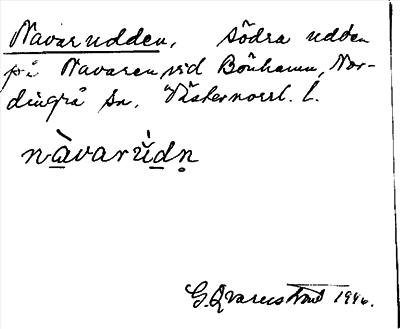 Navarudden, södra udden
på Navaren vid Bönhamn, Nor-
dingrå sn. Västernorrl. l.
nàvarùdṇ
G. Qvarnström 1946.